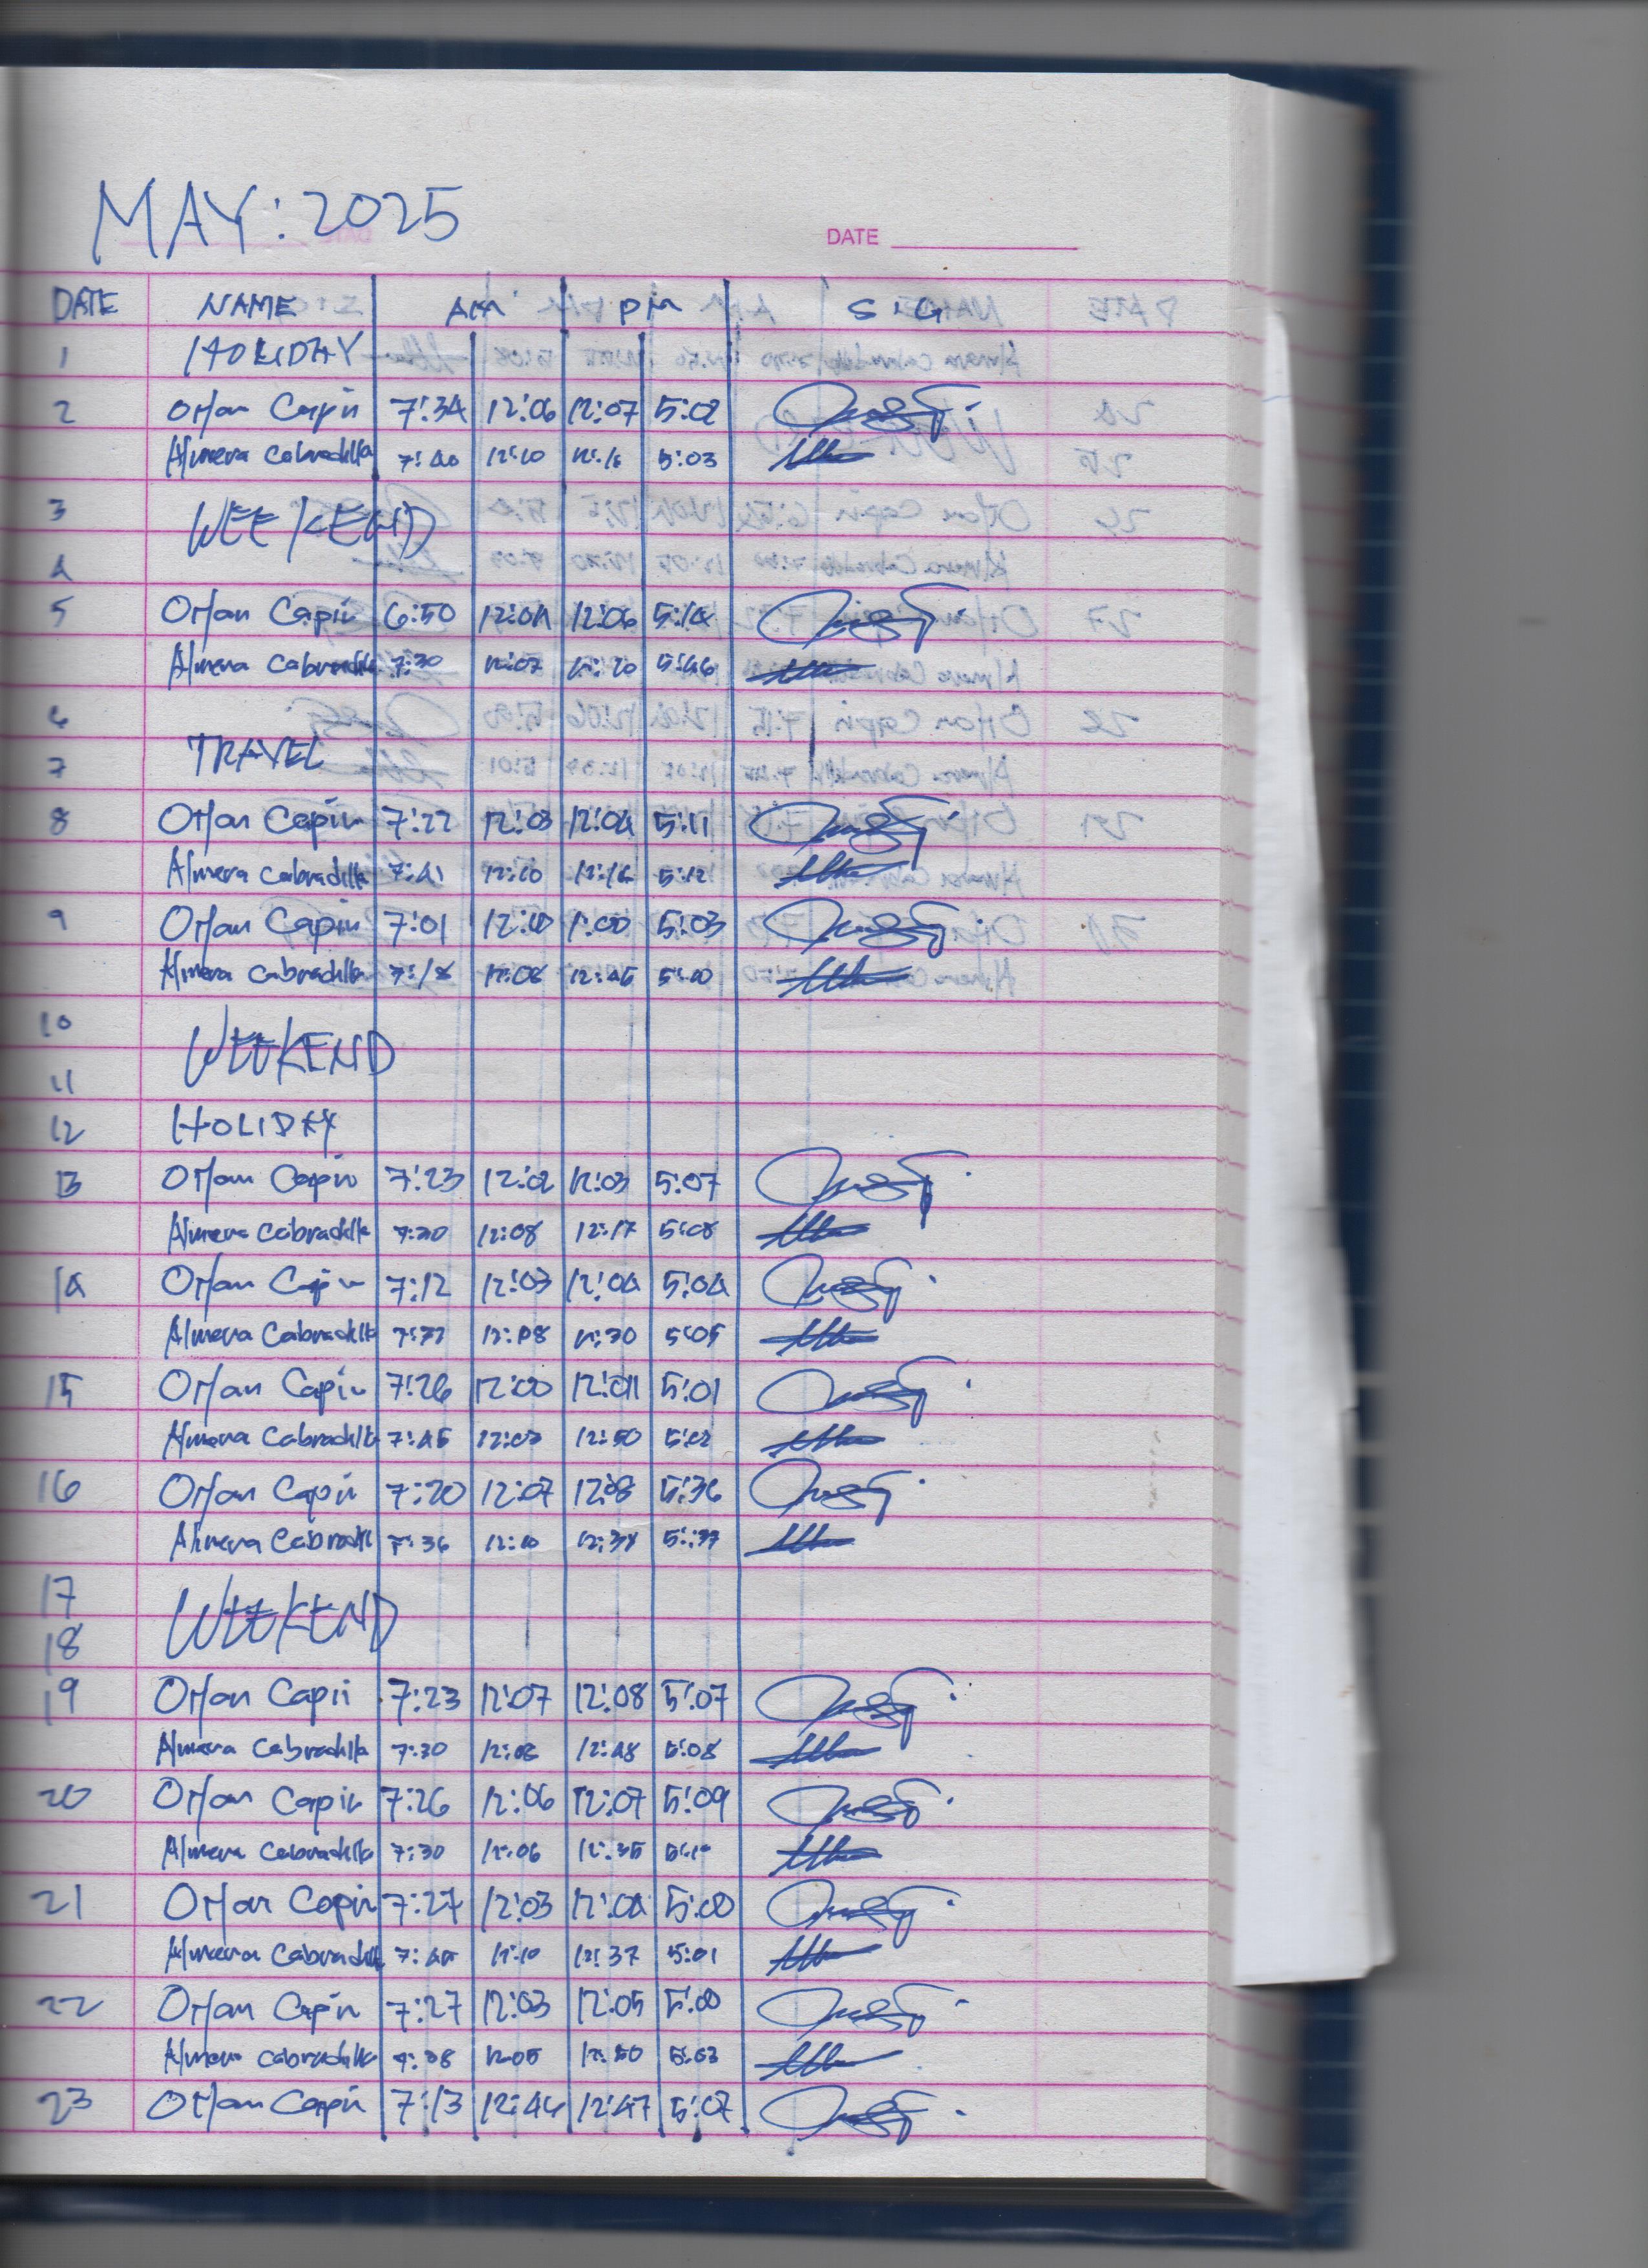 MAY: 2025
DATE
DATE NAME AM PM SIG
1 HOLIDAY
2 Orfan Capin 7:34 12:06 12:07 5:02
Almera Cabradilla 7:40 12:10 12:16 5:03
3 WEEKEND
4
5 Orfan Capin 6:50 12:04 12:06 5:14
Almera Cabradilla 7:30 12:07 12:20 5:46
6
TRAVEL
7
8 Orfan Capin 7:22 12:03 12:04 5:11
Almera Cabradilla 7:41 12:10 12:16 5:12
9 Orfan Capin 7:01 12:00 1:00 5:03
Almera Cabradilla 7:18 12:06 12:45 5:10
10
WEEKEND
11
12 HOLIDAY
13 Orfan Capin 7:23 12:02 12:03 5:07
Almera Cabradilla 7:30 12:08 12:17 5:08
14 Orfan Capin 7:12 12:03 12:04 5:04
Almera Cabradilla 12:08 12:30 5:05
15 Orfan Capin 7:26 12:00 12:01 5:01
Almera Cabradilla 7:45 12:03 12:50 5:02
16 Orfan Capin 7:20 12:07 12:08 5:36
Almera Cabradilla 7:36 12:10 12:38 5:37
17
WEEKEND
18
19 Orfan Capin 7:23 12:07 12:08 5:07
Almera Cabradilla 7:30 12:08 12:48 5:08
20 Orfan Capin 7:26 12:06 12:07 5:09
Almera Cabradilla 7:30 12:06 12:35 5:10
21 Orfan Capin 7:27 12:03 12:04 5:00
Almera Cabradilla 7:45 12:10 12:37 5:01
22 Orfan Capin 7:27 12:03 12:05 5:00
Almera Cabradilla 7:38 12:05 12:50 5:03
23 Orfan Capin 7:13 12:46 12:47 5:07